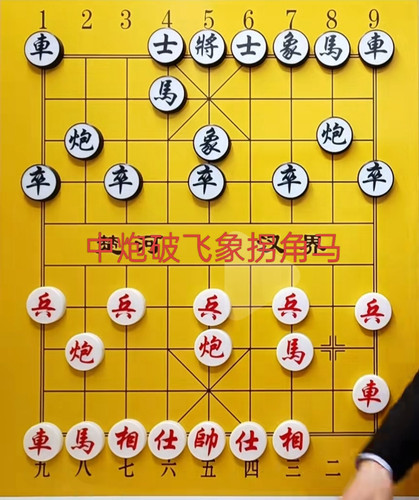 1 2 3 4 5 6 7 8 9
車 士 將 士 象 馬 車
馬
炮 象 炮
卒 卒 卒 卒 卒
楚河 汉界
中炮破飞象拐角马
兵 兵 兵 兵 兵
炮 炮 馬
車
車 馬 相 仕 帥 仕 相
九 八 七 六 五 四 三 二